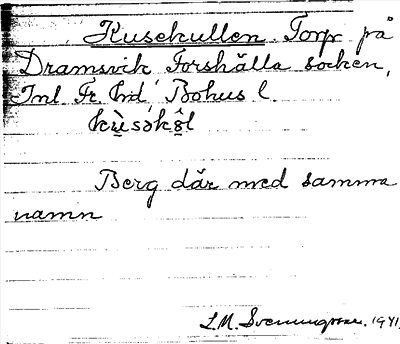 Kusekullen Torp på
Dramsvik, Forshälla socken,
Inl Fr. hd, Bohus l.
Berg där med samma
namn
L.M. Svenungsson. 1941.